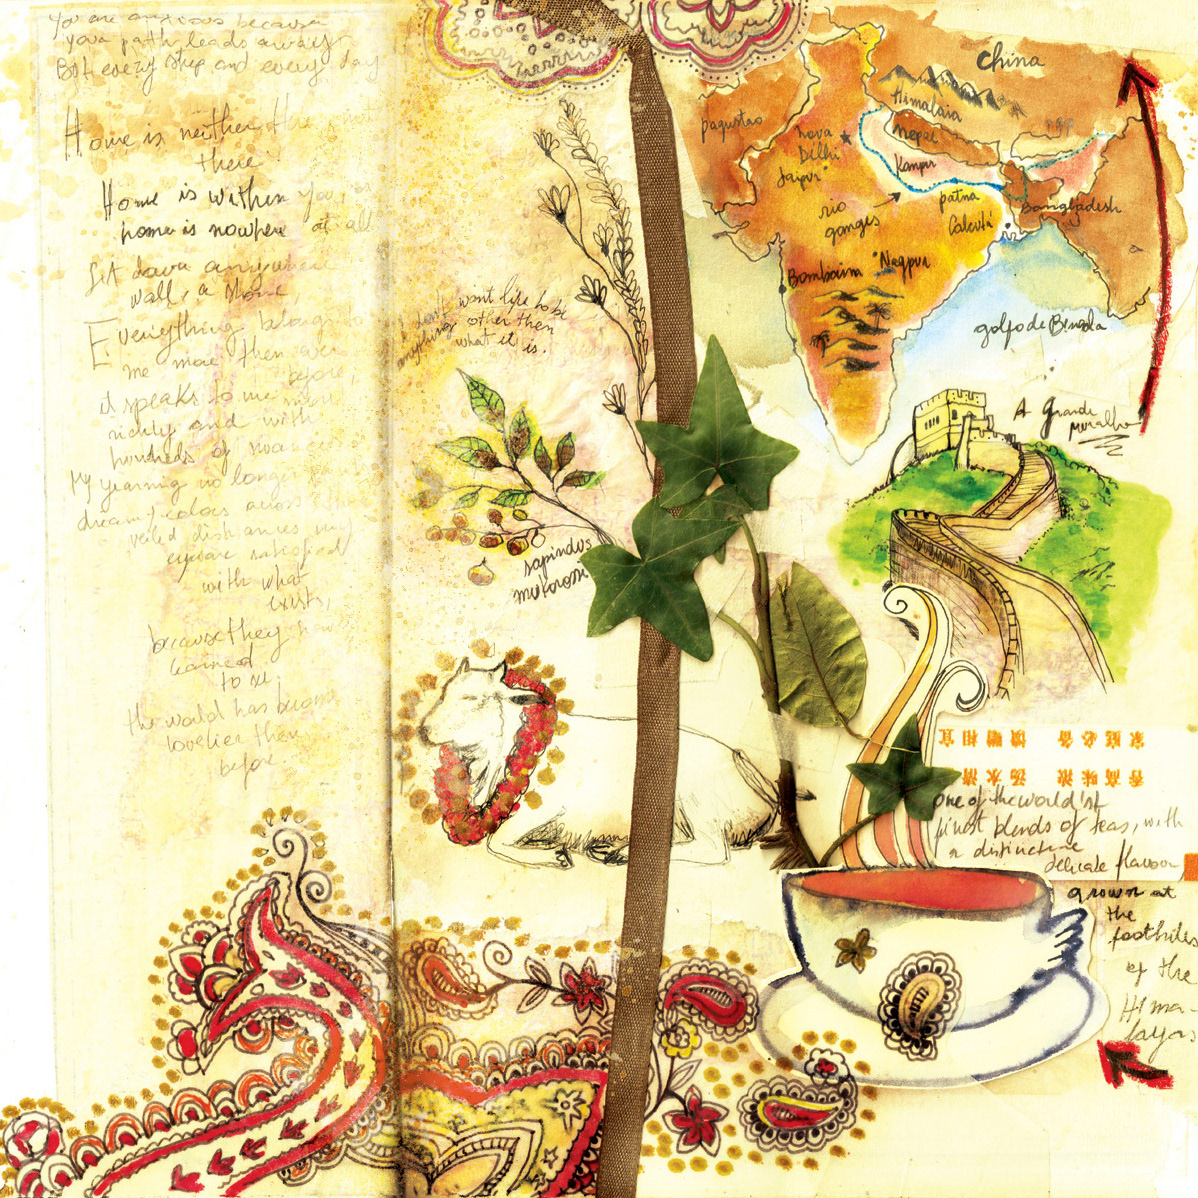 You are anxious because
your path leads away
But every step and every day
Home is neither here nor
there
Home is within you
home is nowhere at all
Sit down anywhere
wall, a stone,
Everything belongs to
me more then ever
before,
it speaks to me more
richly and with
hundreds of
My yearning no longer
dreamy colors across the
veiled distances my
eyes are satisfied
with what
exists,
because they have
learned
to see.
the world has become
lovelier then
before.
I don't want life to be
anything other then
what it is.
sapindus
mukorossi
China
Himalaia
paquistao
nova
Dilhi
Nepal
Jaipur
Kanpur
rio
ganges
patna
Bangladesh
Calcutá
Bombaim
Nagpur
golfo de Bengala
A grande
muralha
家庭必备 馈赠相宜
香高味浓 汤水清
one of the world'st
finest blends of teas, with
a distinctive
delicate flavour
grown at
the
foothiles
of the
Hima-
layas